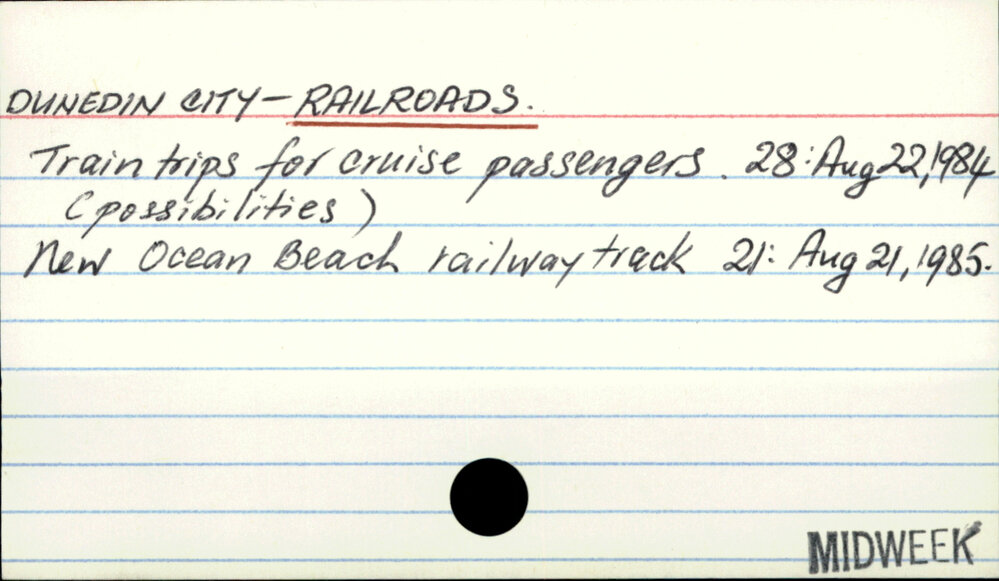 DUNEDIN CITY - RAILROADS.
Train trips for cruise passengers. 28: Aug 22, 1984
(possibilities)
New Ocean Beach railway track 21: Aug 21, 1985.
MIDWEEK